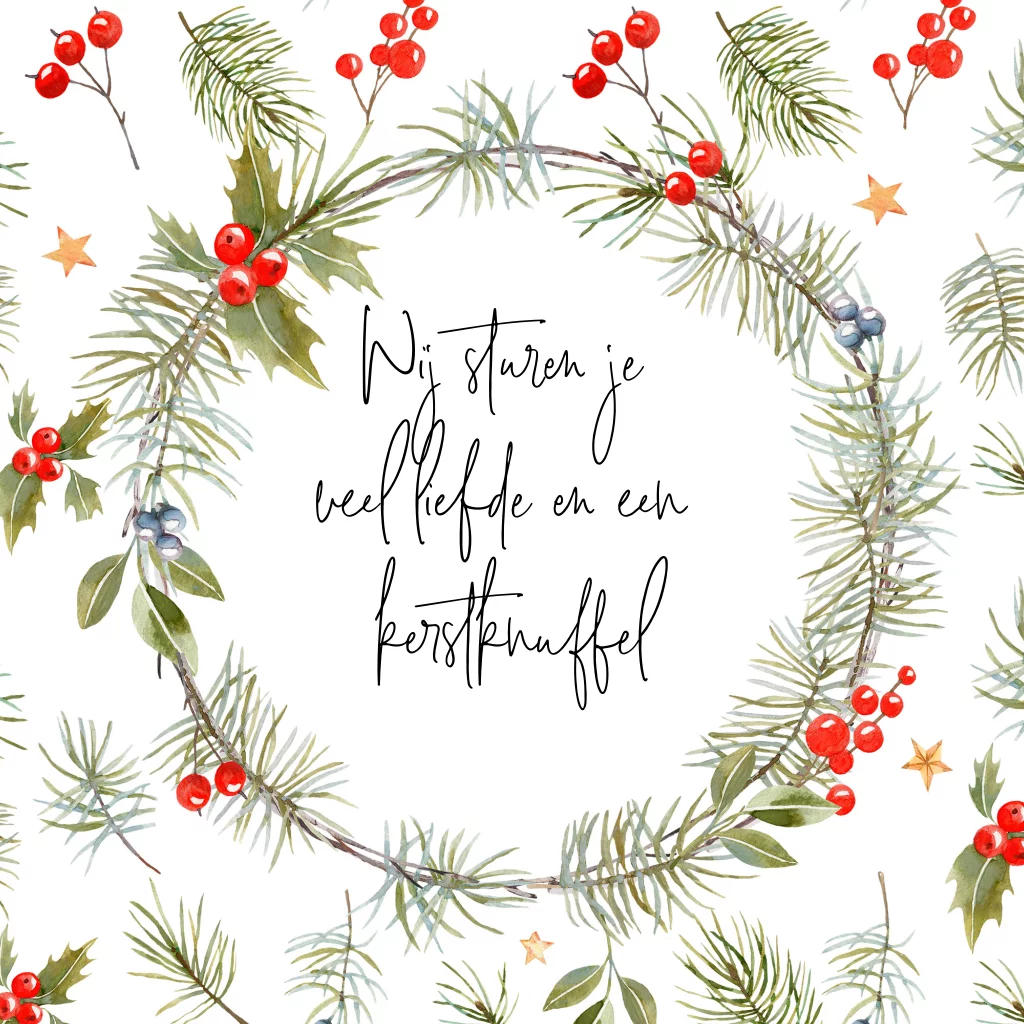 Wij sturen je
veel liefde en een
kerstknuffel